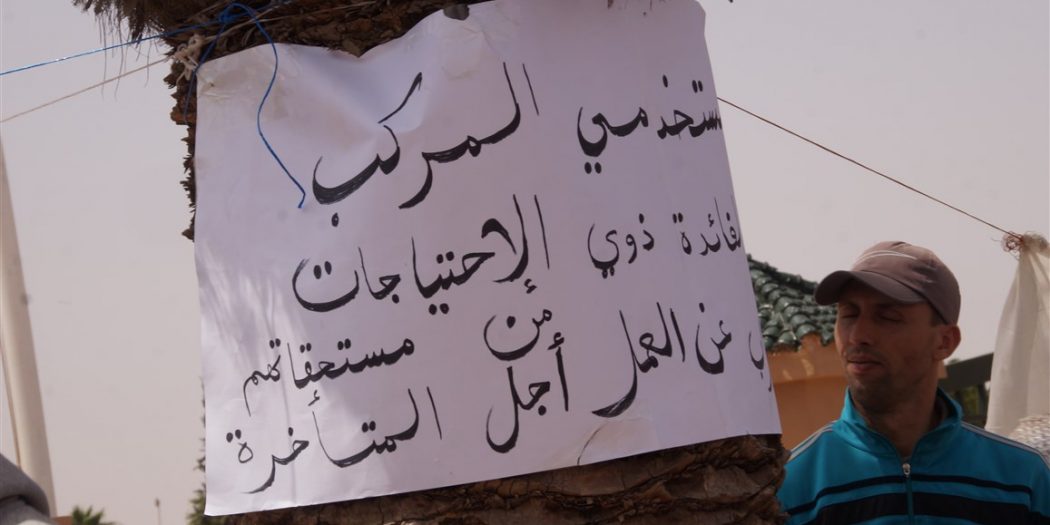 مستخذمي المركب
لفائدة ذوي الإحتياجات
عن العمل من أجل
مستحقاتهم
المتأخرة